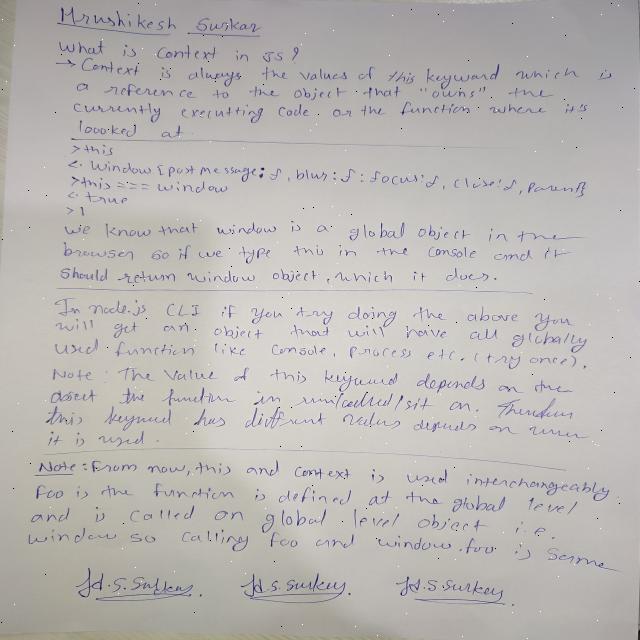 Hrushikesh Suskar
What is Context in JS ?
→ Context is always the values of this keyword which is
a reference to the object that "owns". the
currently executting code. or the function where it's
loooked at
> this
<. Window { postmessage: f, blur: f : focus: f, close: f, Parent}
> this === window
<. true
> 1
We know that window is a global object in the
browser so if we type this in the console and it
should return window object, which it does.
In node.js CLI if you try doing the above you
will get an object that will have all globally
used function like console, process etc. (try once).
Note : The Value of this keyword depends on the
the function in on. Therefore
this keyword has diffrent values depends on
it is used.
Note : From now, this and context is used interchangeably
Foo is the function is defined at the global level
and is called on global level object i.e.
window so calling foo and window.foo is Same